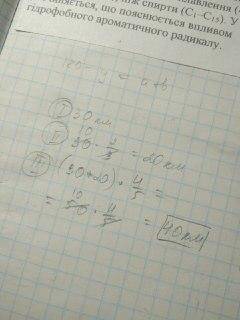 спирти (C₁–C₁₅). У
що пояснюється впливом
гідрофобного ароматичного радикалу.
I 30 км
II 30 · 2/3 = 20 км
III (30+20) · 4/5 =
= 50 · 4/5 = 40км